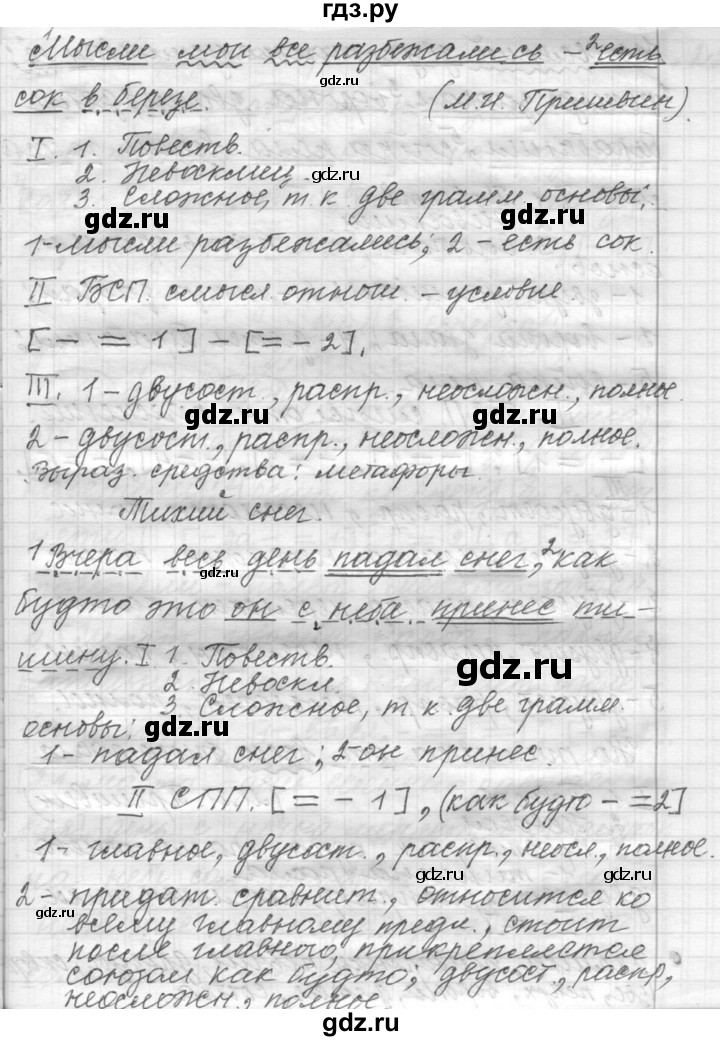 гдз.ру
¹Мысли мои все разбежались – ²есть
сок в березе. (М.И. Пришвин).
I. 1. Повеств.
2. Невосклиц. gdz.ru
3. Сложное, т.к две грамм. основы:
gdz.ru gdz.ru
1-мысли разбежались; 2 - есть сок.
II БСП. смысл. отнош. – условие.
gdz.ru
[— = 1] – [= — 2].
III. 1 – двусост., распр., неосложн., полное.
gdz.ru gdz.ru
2 – двусост., распр., неосложн., полное.
Выраз. средства: метафоры.
Тихий снег.
¹Вчера весь день падал снег, ²как
gdz.ru
будто это он с неба принес ти-
шину. I 1. Повеств.
gdz.ru
2. Невоскл.
3. Сложное, т.к две грамм.
основы: gdz.ru
1- падал снег; 2-он принес.
II СПП. [= – 1], (как будто – =2]
1- главное, двусост., распр., неосл., полное.
gdz.ru gdz.ru
2 – придат. сравнит., относится ко
gdz.ru
всему главному предл., стоит
после главного, прикрепляется
союзом как будто; двусост, распр,
gdz.ru
неосложн., полное.
gdz.ru